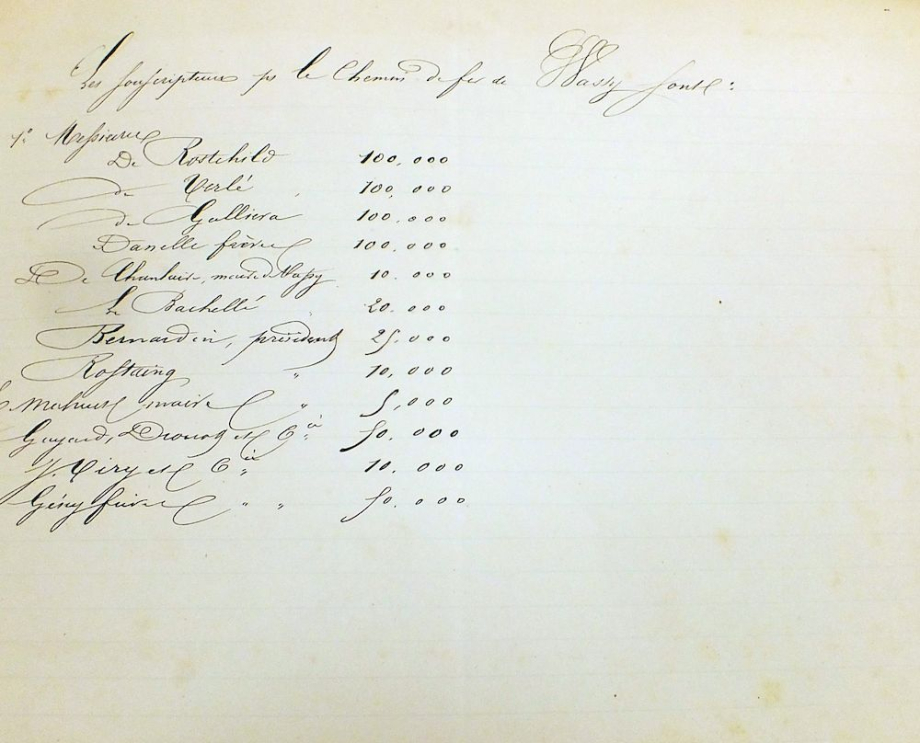 Les souscripteurs pr le Chemin de fer de Wassy sont :
1° Messieurs
De Rostchild 100,000
de Verlé 100,000
de Galliera 100.000
Danelle frères 100,000
De Chanlaire, maire de Wassy 10.000
Le Bachellé 20.000
Bernardin, président 25.000
Rostaing " 10,000
maire " 5,000
Guyard, et Cie 50.000
J. Viry et Cie 10.000
Gény frères " " 50.000